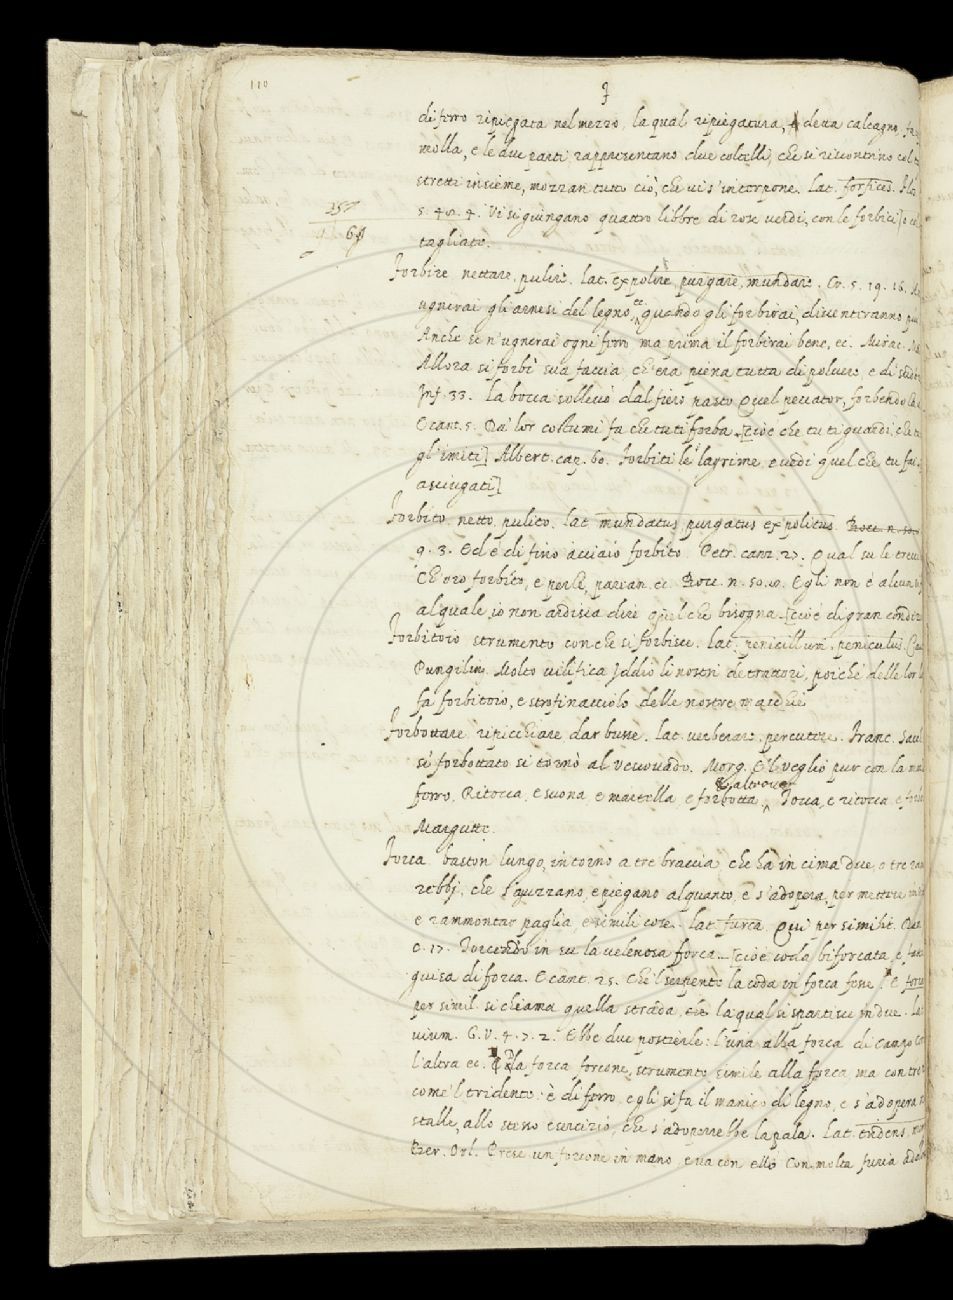 110
F
di ferro ripiegata nel mezzo, la qual ripiegatura, è detta calcagno, fa
molla, e le due parti rappresentano due coltelli, che si riscontrino col t
stretti insieme, mozzan tutto ciò, che vi s'interpone. Lat. forfices. M. Al.
5. 4. Vi si giungano quattro libbre di rose verdi, con le forbici
257
tagliate.
Forbire nettare, pulire. Lat. expolire, purgare, mundare. Cr. 5. 19. 16.
ugnerai gli arnesi del legno ec. quando gli forbirai, diventeranno piu
Anche se n'ugnerai ogni ferro ma prima il forbirai bene, ec. Mirac. Ma
Allora si forbì sua faccia, ch'era piena tutta di polvere e di sudor
Inf. 33. La bocca sollevò dal fiero pasto Quel peccator, forbendola
E cant. 5. Da' lor costumi fa che tu ti forba. [cioè che tu ti guardi, che tu
gl'imiti] Albert. cap. 60. Forbiti le lagrime, e vedi quel che tu fai
asciugati]
Forbito netto, pulito. Lat. mundatus, purgatus expolitus. Bocc. n. 50.
9. 3. Ed è di fino acciaio forbito. Petr. canz. 27. Qual su le trecc
Ch'oro forbito, e perle, parean ec. Bocc. n. 50. 10. Egli non è alcun
al quale io non ardisca dire quel che bisogna [cioè di gran condiz
Forbitoio strumento con che si forbisce. Lat. penicillum, peniculus.
Pungiling. Molto vilifica Iddio li nostri detrattori, poiché delle lor l
fa forbitoio, e strofinacciolo delle nostre macchie
Forbottare ripicchiare dar busse. Lat. verberare, percutere. Franc. Sacc
sì forbottato si tornò al Vescovado. Morg. E'l veglio pur con la ma
E altrove
ferro, Ritocca, e suona, e martella, e forbotta. Tocca, e ritocca e forb
Margutte.
Forca baston lungo, intorno a tre braccia, che ha in cima due, o tre ram
rebbj, che s'aguzzano, e piegano alquanto, e s'adopera, per mettere in
e rammontar paglia, e simili cose. Lat. furca. Qui per similit. Dan
c. 17. Torcendo in su la velenosa forca [cioè coda biforcata, e fatt
guisa di forca. E cant. 25. Che'l serpente la coda in forca fesse E forca
per simil. si chiama quella strada, che la qual si spartisce in due. La
vium. G. V. 4. 7. 2. Ebbe due postierle: l'una alla forca di Campo
l'altra ec. Dalla forca forcone, strumento simile alla forca, ma con tre
come'l tridente: è di ferro, e gli si fa il manico di legno, e s'adopera
stalle, allo stesso esercizio, che s'adoperrebbe la pala. Lat. tridens,
Ber. Orl. Prese un forcone in mano, e va con ello Con molta furia